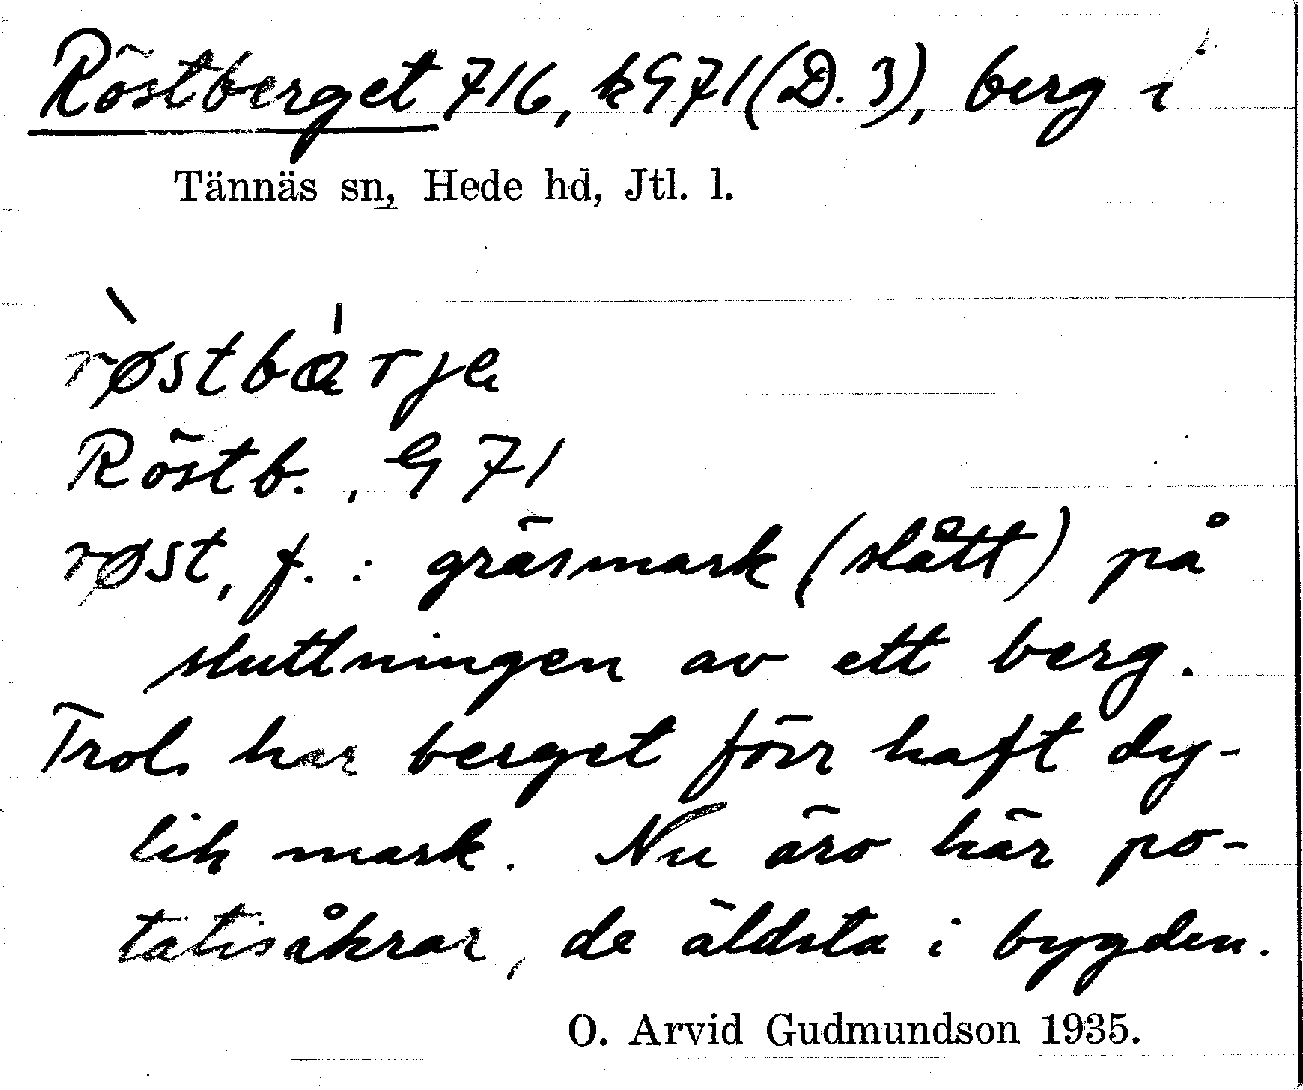 Röstberget 716, kG71 (D. 3), berg i
Tännäs sn, Hede hd, Jtl. l.
røstbárje
Röstb., G 71
røst, f. : gräsmark (slått) på
sluttningen av ett berg.
Trol. har berget förr haft dy-
lik mark. Nu äro här po-
tatisåkrar, de äldsta i bygden.
O. Arvid Gudmundson 1935.